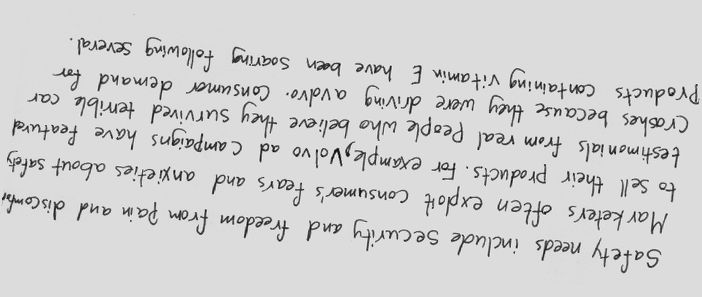 Safety needs include security and freedom from pain and discomfor
Marketers often exploit consumer's fears and anxieties about safety
to sell their products. For example, Volvo ad campaigns have featured
testimonials from real People who believe they survived terrible car
Crashes because they were driving avolvo. Consumer demand for
Products containing vitamin E have been soaring following several.